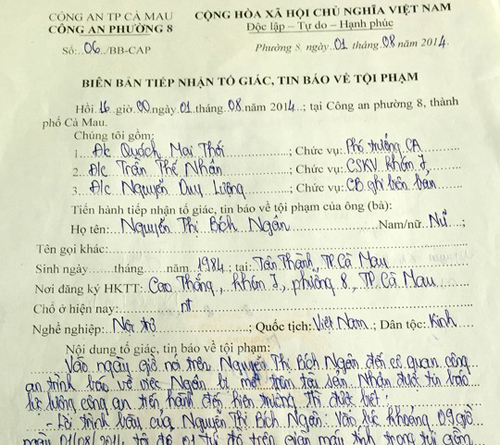 CÔNG AN TP CÀ MAU
CÔNG AN PHƯỜNG 8
Số: 06 /BB-CAP
CỘNG HÒA XÃ HỘI CHỦ NGHĨA VIỆT NAM
Độc lập – Tự do – Hạnh phúc
Phường 8, ngày 01 tháng 08 năm 2014.
BIÊN BẢN TIẾP NHẬN TỐ GIÁC, TIN BÁO VỀ TỘI PHẠM
Hồi 16 giờ 00 ngày 01 tháng 08 năm 2014; tại Công an phường 8, thành
phố Cà Mau.
Chúng tôi gồm:
1. Đ/c Quách Mai Thới ; Chức vụ: Phó trưởng CA
2. Đ/c Trần Thế Nhân ; Chức vụ: CSKV Khóm 7,
3. Đ/c Nguyễn Duy Lương ; Chức vụ: CB ghi biên bản
Tiến hành tiếp nhận tố giác, tin báo về tội phạm của ông (bà):
Họ tên: Nguyễn Thị Bích Ngân Nam/nữ: Nữ ;
Tên gọi khác:
Sinh ngày tháng năm 1984; tại: Tân Thành, TP. Cà Mau
Nơi đăng ký HKTT: Cao Thắng, Khóm 7, phường 8, TP Cà Mau
Chỗ ở hiện nay: nt
Nghề nghiệp: Nội trợ ; Quốc tịch: Việt Nam ; Dân tộc: Kinh
Nội dung tố giác, tin báo về tội phạm:
Vào ngày giờ nói trên Nguyễn Thị Bích Ngân đến cơ quan công
an trình báo về việc Ngân bị mất trộm tài sản. Nhận được tin báo
lực lượng công an tiến hành đến hiện trường thì được biết:
- Lời trình bày của Nguyễn Thị Bích Ngân: Vào lúc khoảng 09 giờ
ngày 01/08/2014